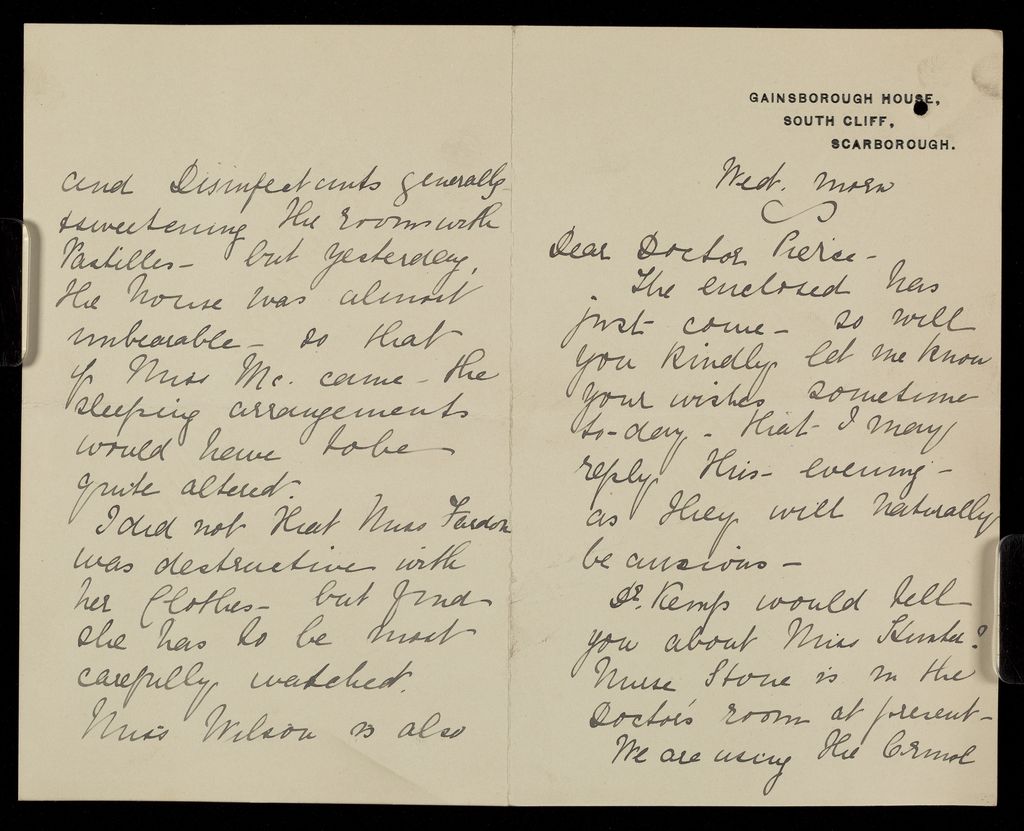 GAINSBOROUGH HOUSE,
SOUTH CLIFF,
SCARBOROUGH.
Wed. morn
Dear Doctor Pierce -
The enclosed has
just come - so will
you kindly let me know
your wishes sometime
to-day - that I may
reply this evening -
as they will naturally
be anxious -
Dr. Kemp would tell
you about Miss
Nurse Stone is in the
Doctor's room at present -
We are using the
and Disinfectants generally
& sweetening the rooms with
Pastilles - but yesterday,
the house was almost
unbearable - so that
if Miss Mc. came - the
sleeping arrangements
would have to be
quite altered.
I did not that Miss
was destructive with
her Clothes - but find
she has to be most
carefully watched.
Miss Wilson is also